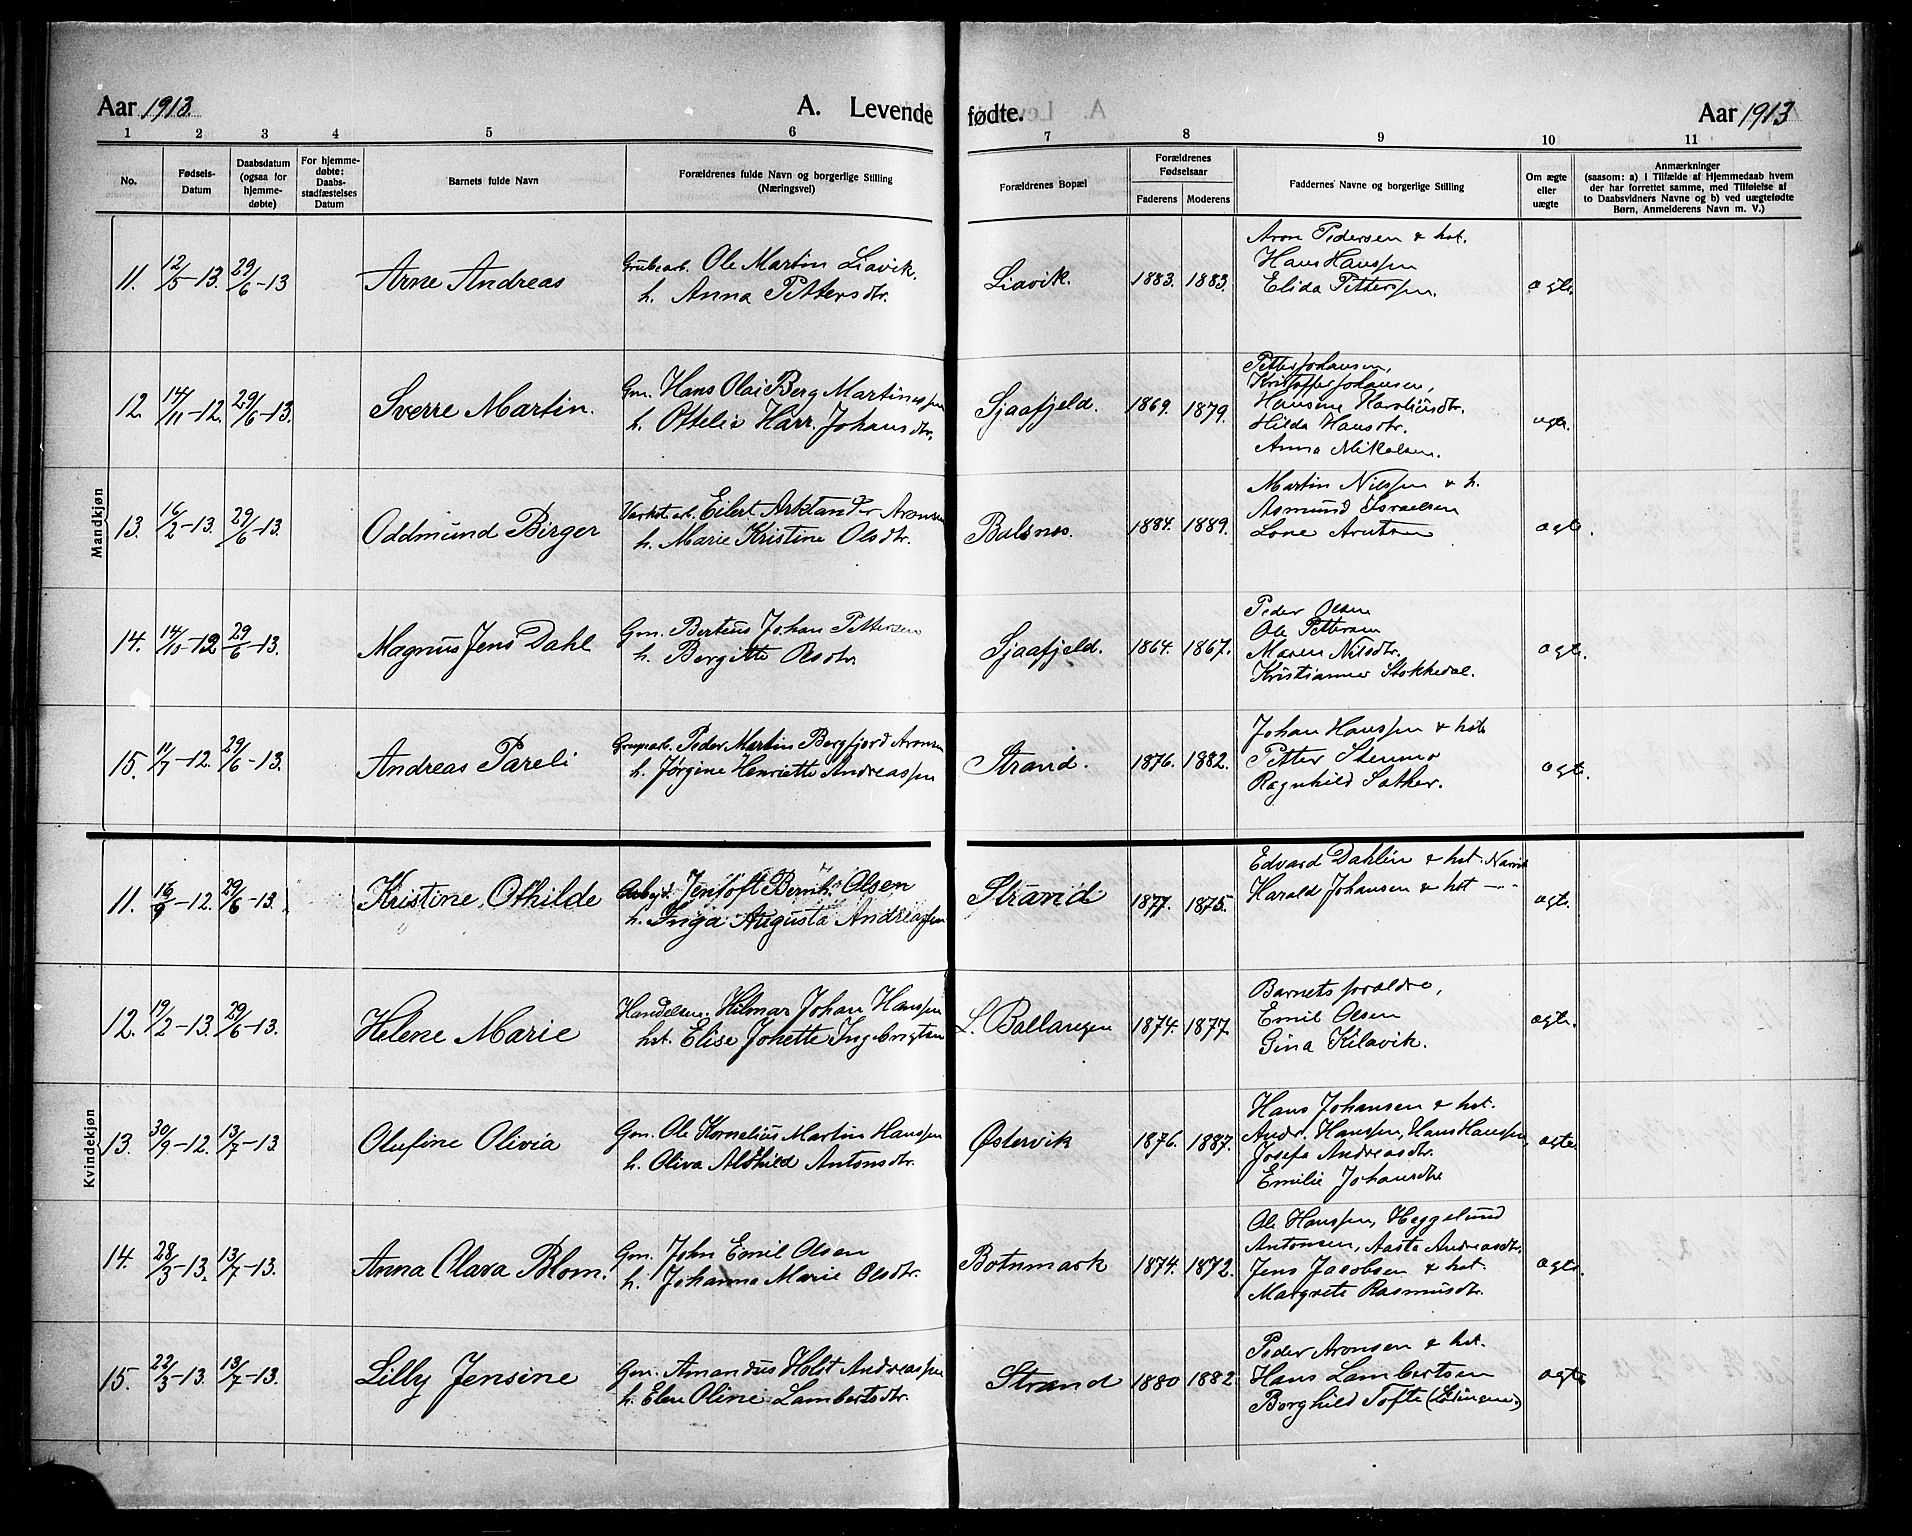 Aar 1913. A. Levende fødte. Aar 1913
1 2 3 4 5 6 7 8 9 10 11
No.
Fødsels-
Datum
Daabsdatum
(ogsaa for
hjemme-
døbte)
For hjemme-
døbte:
Daabs-
stadfæstelses
Datum
Barnets fulde Navn
Forældrenes fulde Navn og borgerlige Stilling
(Næringsvei)
Forældrenes Bopæl
Forældrenes
Fødselsaar
Faderens Moderens
Faddernes Navne og borgerlige Stilling
Om ægte
eller
uægte
Anmærkninger
(saasom: a) i Tilfælde af Hjemmedaab hvem
der har forrettet samme, med Tilføielse af
to Daabsvidners Navne og b) ved uægtefødte
Børn, Anmelderens Navn m. V.)
Mandkjøn
11. 12/5-13. 29/6-13 Arne Andreas
Grubearb. Ole Martin Liavik.
h. Anna Pettersdtr.
Liavik. 1883. 1883.
Aron Pedersen & hst.
Hans Hanssen
Elida Petterssen.
ægte
12. 14/11-12. 29/6-13. Sverre Martin.
Gm. Hans Olai Berg Martinussen
h. Ottelie Harr. Johansdtr.
Sjaafjeld. 1869. 1879.
Petter Johansen,
Kristoffer Johansen,
Hansine Haraldsdtr.
Hilda Hansdtr.
Anna Mikalsen.
ægte.
13. 16/2-13. 29/6-13. Oddmund Birger
Værkst.arb. Eilert Arktander Aronsen
h. Marie Kristine Olsdtr.
Balsnes. 1884. 1889.
Martin Nilssen & h.
Asmund Israelsen
Lone Arntsen
ægte.
14. 14/10-12 29/6-13. Magnus Jens Dahl
Gm. Berteus Johan Pettersen
h. Bergitte Olsdtr.
Sjaafjeld. 1864. 1867.
Peder Olsen
Ole Pettersen
Maren Nilsdtr.
Kristianne Stokkedal.
ægte.
15. 11/7-12. 29/6-13. Andreas Pareli
Grubearb. Peder Martin Bergfjord Aronsen
h. Jørgine Henriette Andreassen
Strand. 1876. 1882.
Johan Hanssen & hst.
Petter Stenmo
Ragnhild Sather.
ægte.
Kvindekjøn
11. 16/9-12. 29/6-13. Kristine Othilde
Arbeid. Jentoft Bernh. Olsen
h. Inga Augusta Andreassen
Strand 1877. 1875.
Edvard Dahlin & hst. Narvik
Harald Johansen & hst — "-
ægte.
12. 19/2-13. 29/6-13. Helene Marie
Handelsm. Hilmar Johan Hanssen
hst. Elise Johette Ingebrigtsen
L. Ballangen 1874. 1877.
Barnets forældre,
Emil Olsen
Gina Kilavik.
ægte.
13. 30/9-12. 13/7-13. Olufine Olivia
Gm. Ole Kornelius Martin Hanssen
h. Oliva Alfhild Antonsdtr.
Østervik 1876. 1887.
Hans Johansen & hst.
Andr. Hanssen, Hans Hanssen
Josefa Andreasdtr.
Emilie Johansdtr
ægte.
14. 28/3-13. 13/7-13. Anna Clara Blom.
Gm. John Emil Olsen
h. Johanna Marie Olsdtr.
Botnmark 1874. 1872.
Ole Hanssen, Heggelund
Antonsen, Aasta Andreasdtr.
Jens Jacobsen & hst.
Margrete Rasmusdtr.
ægte.
15. 22/3-13. 13/7-13. Lilly Jensine
Gm. Amandus Holst Andreassen
h. Elen Oline Lambertsdtr.
Strand 1880 1882.
Peder Aronsen & hst.
Hans Lambertsen
Borghild Tofte (Lødingen)
ægte